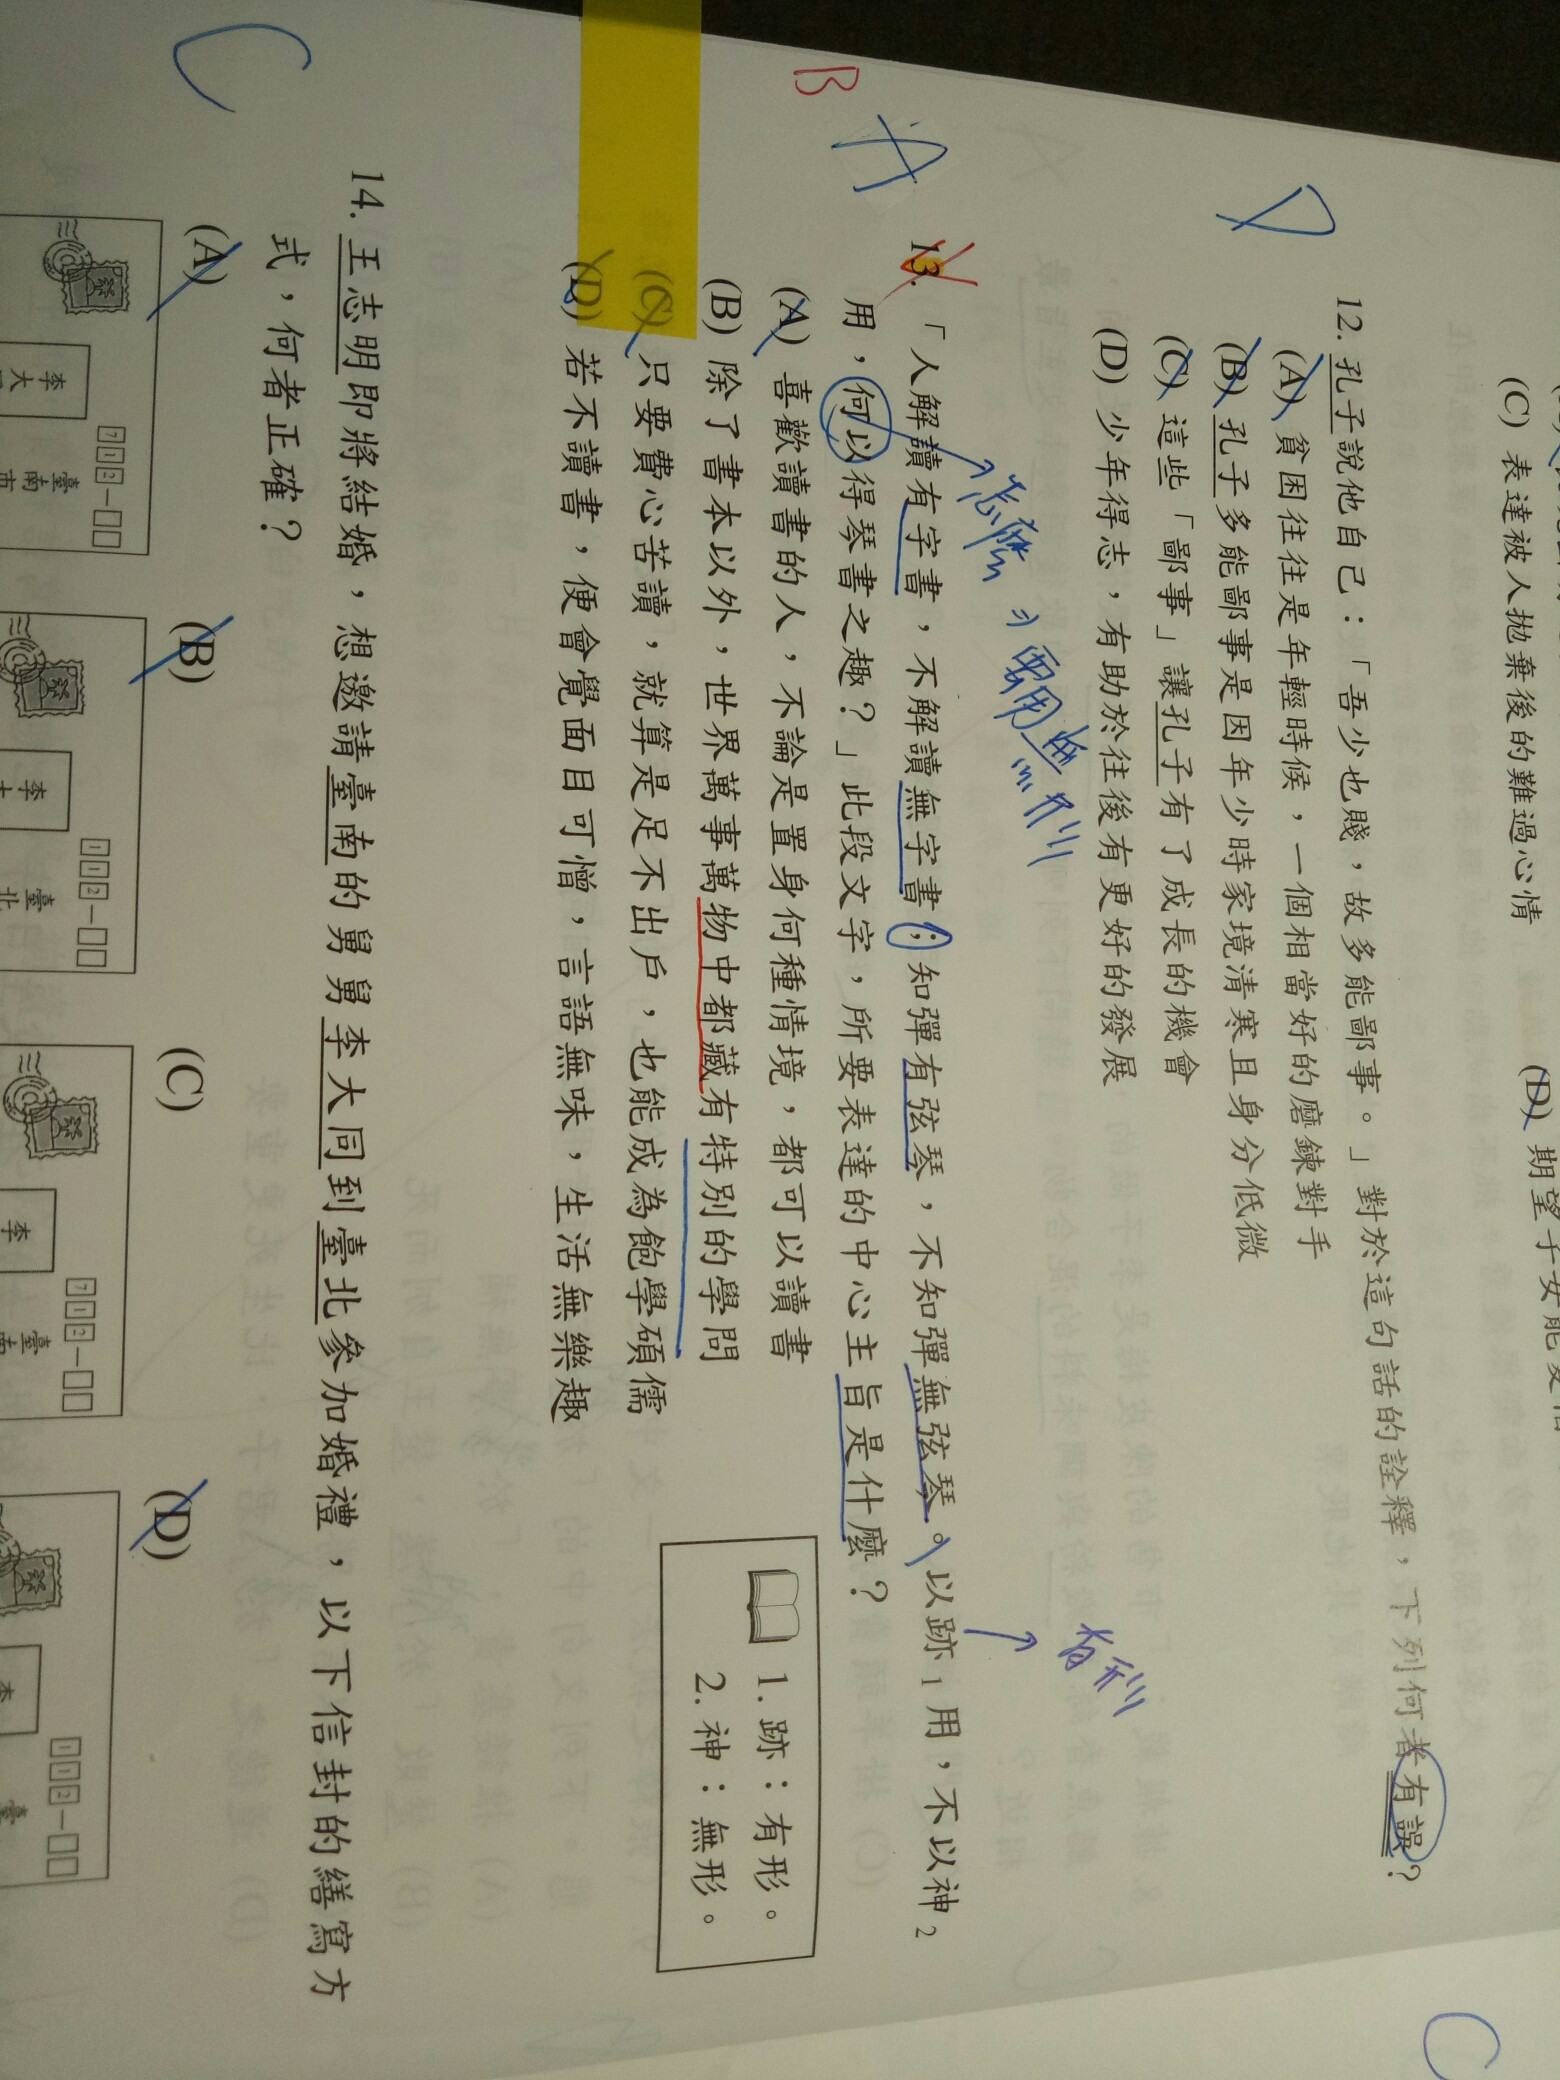 (C) 表達被人拋棄後的難過心情
(D) 期望子女能
D
12. 孔子說他自己：「吾少也賤，故多能鄙事。」對於這句話的詮釋，下列何者有誤？
(A) 貧困往往是年輕時候，一個相當好的磨鍊對手
(B) 孔子多能鄙事是因年少時家境清寒且身分低微
(C) 這些「鄙事」讓孔子有了成長的機會
(D) 少年得志，有助於往後有更好的發展
怎麼 要用無形
有形
B
A
13. 「人解讀有字書，不解讀無字書；知彈有弦琴，不知彈無弦琴。以跡1用，不以神2
用，何以得琴書之趣？」此段文字，所要表達的中心主旨是什麼？
(A) 喜歡讀書的人，不論是置身何種情境，都可以讀書
(B) 除了書本以外，世界萬事萬物中都藏有特別的學問
(C) 只要費心苦讀，就算是足不出戶，也能成為飽學碩儒
(D) 若不讀書，便會覺面目可憎，言語無味，生活無樂趣
1. 跡：有形。
2. 神：無形。
C
14. 王志明即將結婚，想邀請臺南的舅舅李大同到臺北參加婚禮，以下信封的繕寫方
式，何者正確？
(A)
(B)
(C)
(D)
702-
臺南市
李大
002-
臺北
李
702-
臺南
李
002-
臺
李
C